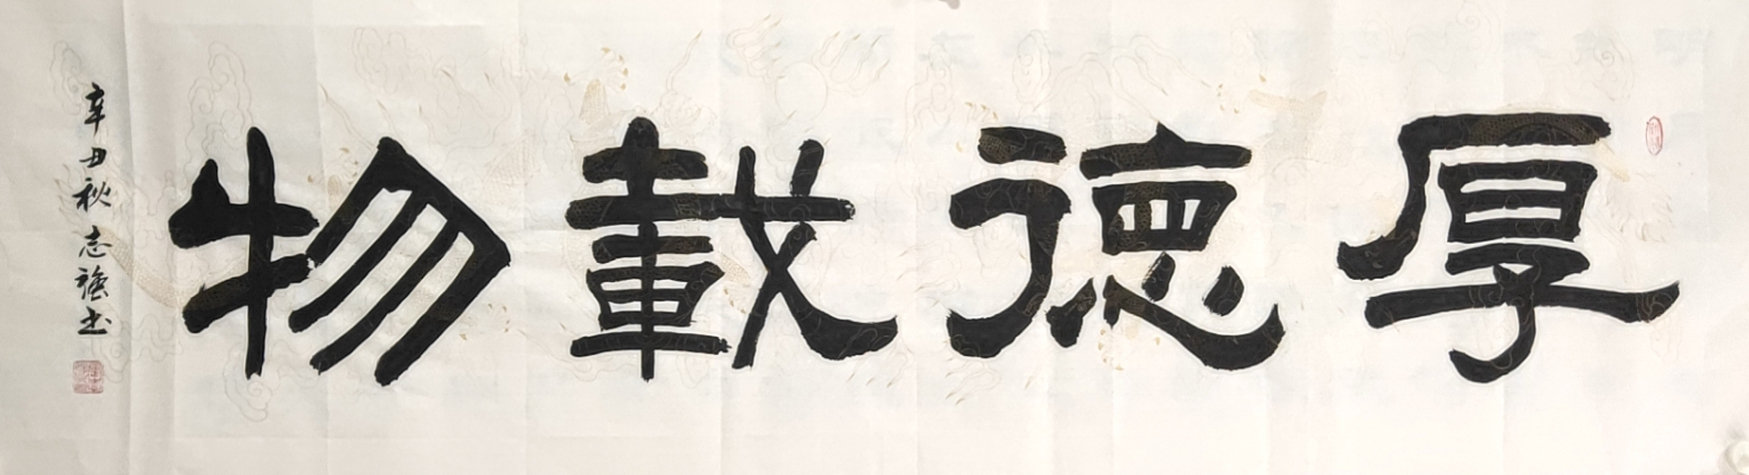 厚德載物
辛丑秋志強书